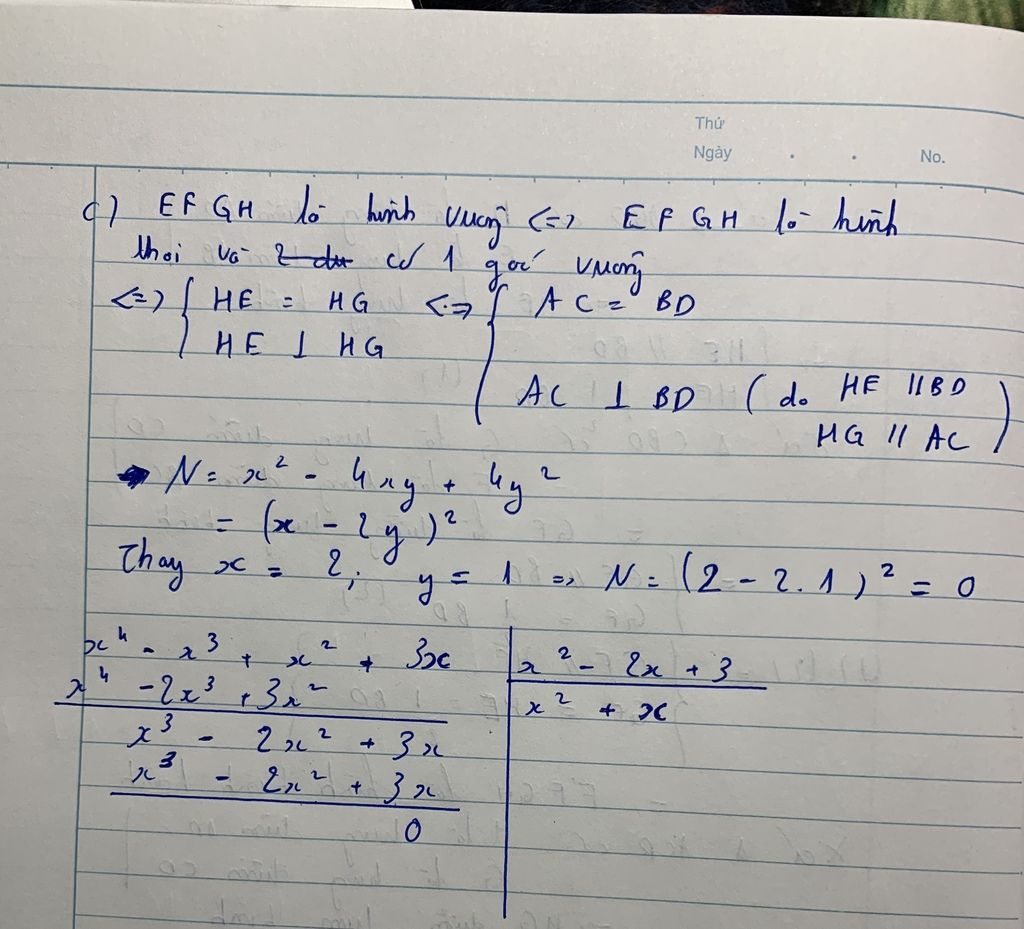 Thứ
Ngày . . No.
c) EFGH là hình vuông <=> EFGH là hình
thoi và có 1 góc vuông
<=> { HE = HG <=> { AC = BD
HE ⊥ HG
AC ⊥ BD ( do HE // BD
HG // AC )
N = x² - 4xy + 4y²
= (x - 2y)²
Thay x = 2; y = 1 => N = (2 - 2.1)² = 0
x⁴ - x³ + x² + 3x | x² - 2x + 3
x⁴ - 2x³ + 3x² | x² + x
x³ - 2x² + 3x
x³ - 2x² + 3x
0